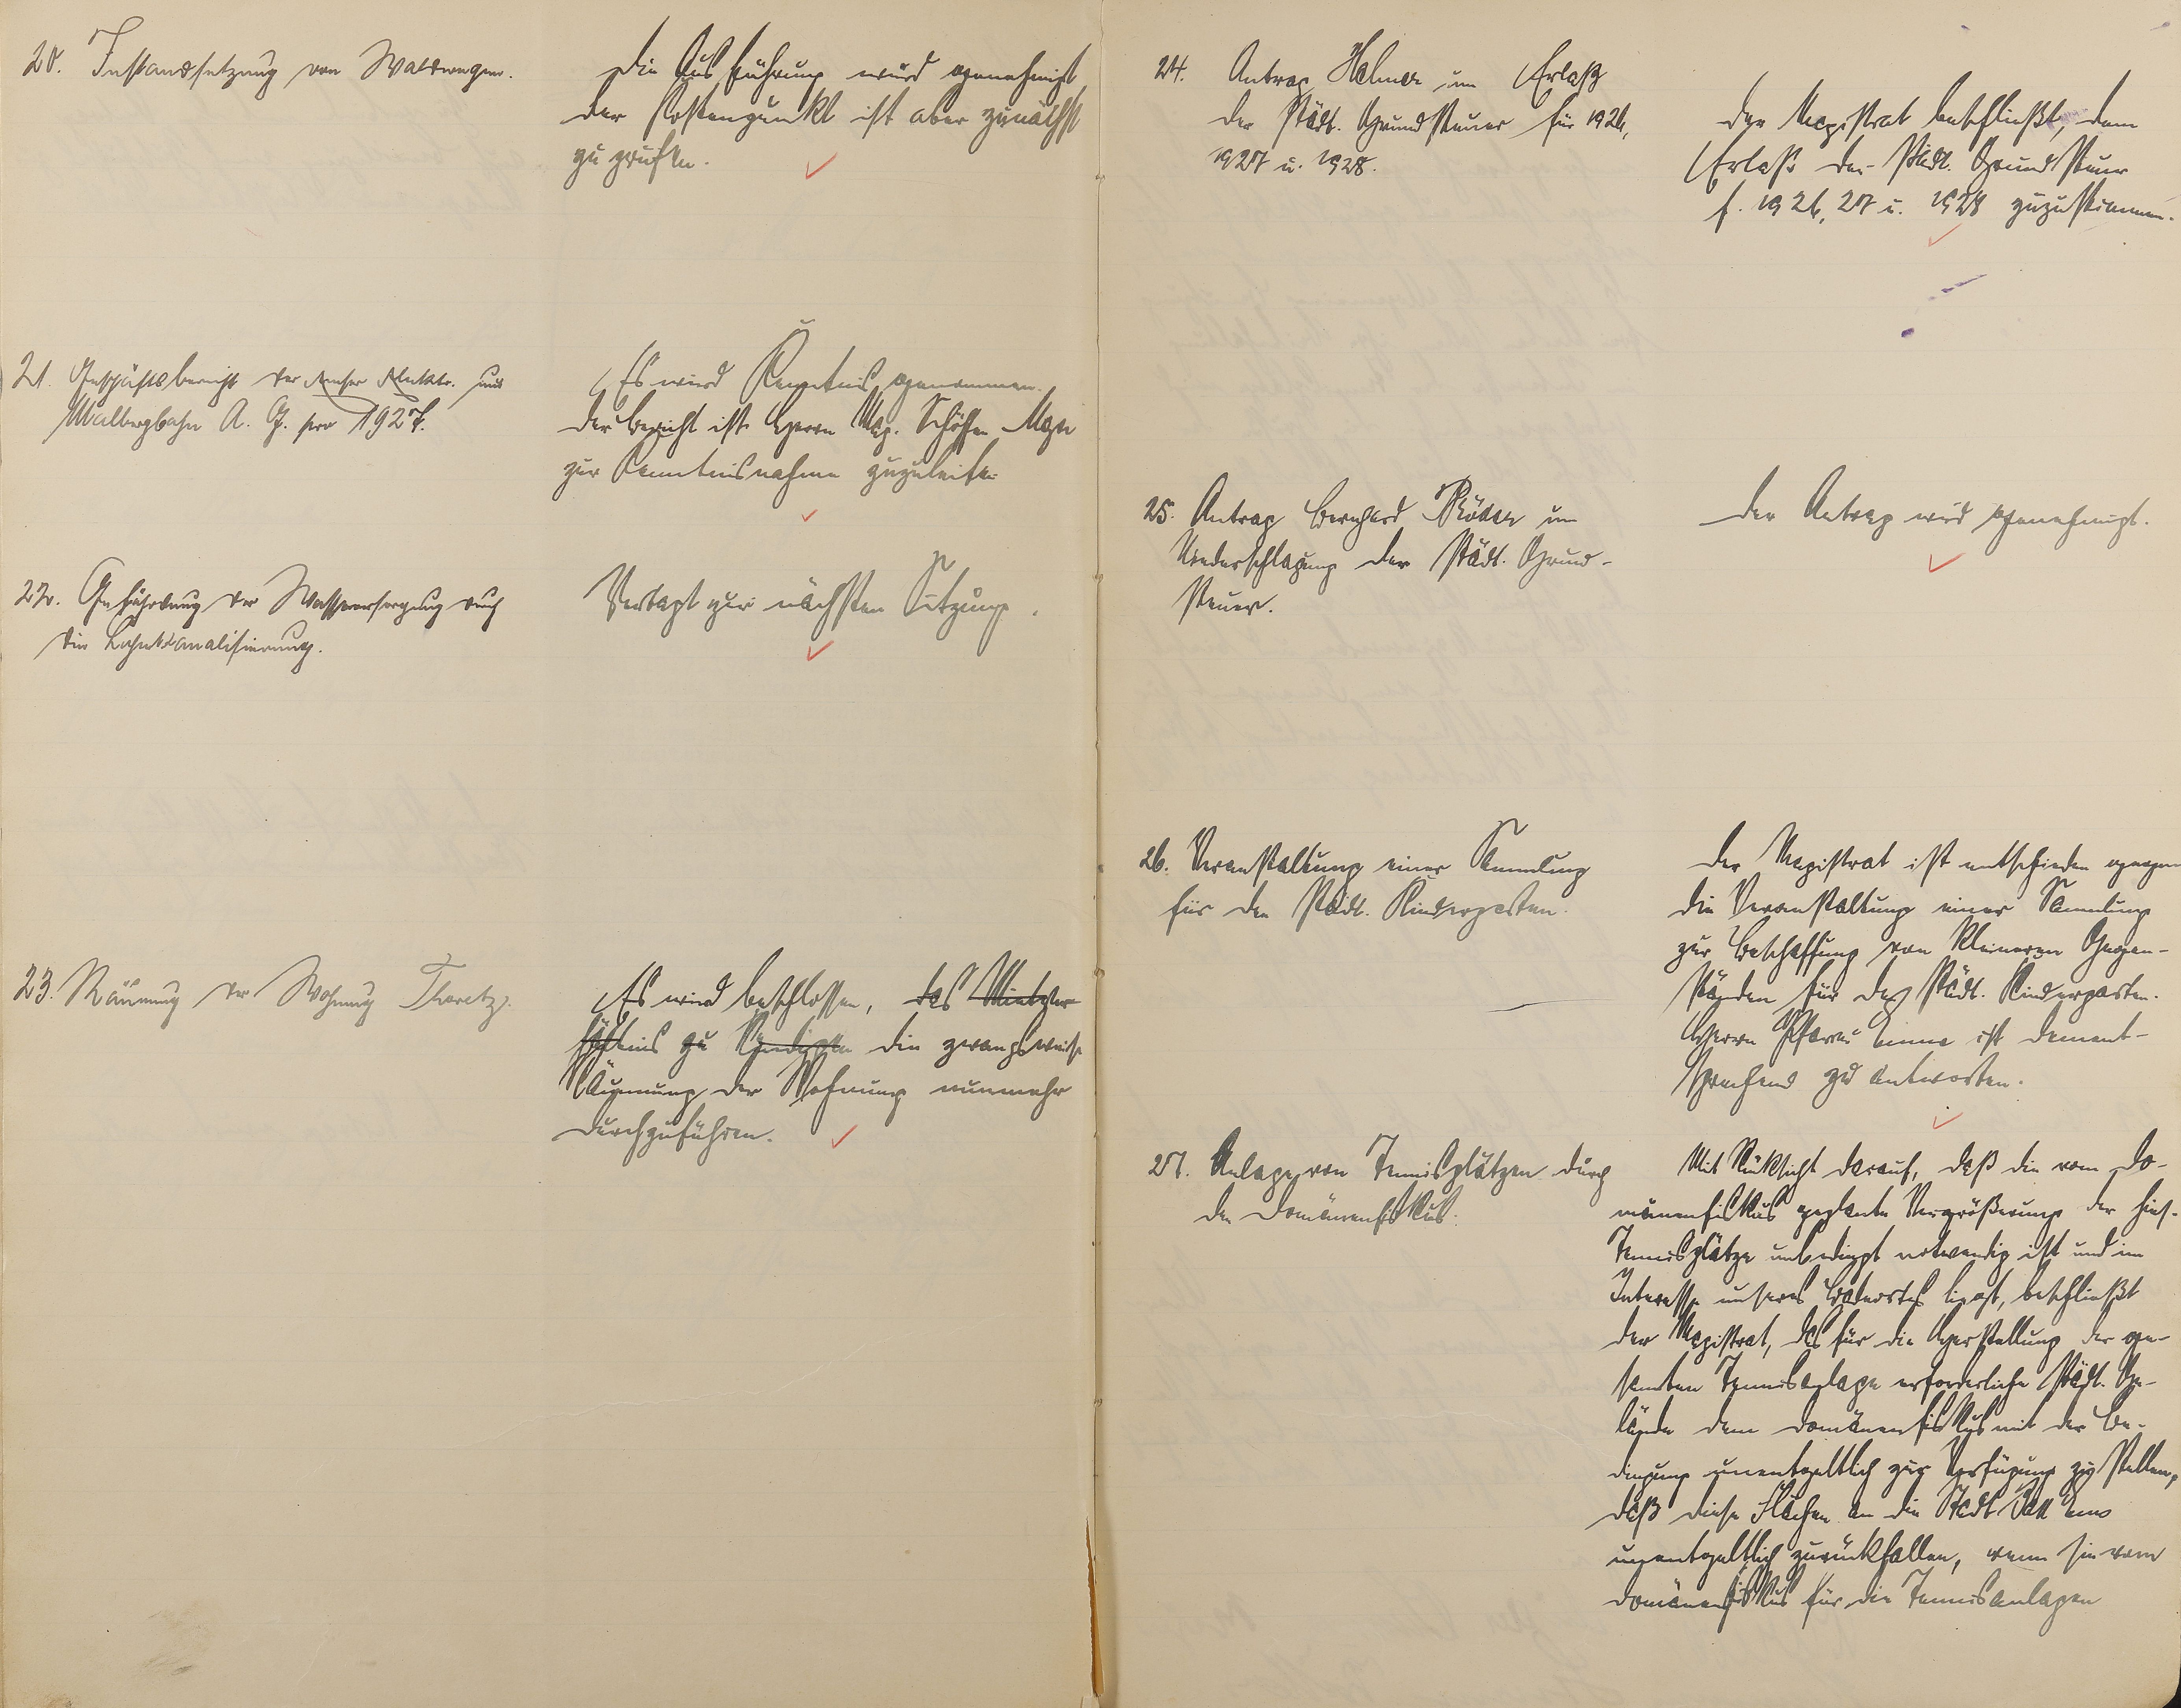 20. Instandsetzung von Waldwegen.
Die Ausführung wird genehmigt
der Kostenpunkt ist aber zunächst
zu prüfen.
21. Geschäftsbericht der Emser Elektr. und
Malbergbahn A. G. pro 1927.
Es wird Kenntnis genommen.
Der Bericht ist Herrn Mag. Schöffen
zur Kenntnisnahme zuzuleiten
22. Gefährdung der Wasserversorgung durch
die Lahnkanalisierung.
Vertagt zur nächsten Sitzung.
23. Räumung der Wohnung Theretz.
Es wird beschlossen, das Mietver-
hältnis zu kündigen die zwangsweise
Räumung der Wohnung nunmehr
durchzuführen.
24. Antrag Helmer um Erlaß
der städt. Grundsteuer für 1926,
1927 u. 1928.
Der Magistrat beschließt, dem
Erlaß der städt. Grundsteuer
f. 1926, 27 u. 1928 zuzustimmen.
25. Antrag Bernhard Röder um
Niederschlagung der städt. Grund-
steuer.
Der Antrag wird genehmigt.
26. Veranstaltung einer Sammlung
für den städt. Kindergarten.
Der Magistrat ist entschieden gegen
die Veranstaltung einer Sammlung
zur Beschaffung von kleineren Gegen-
ständen für den städt. Kindergarten.
Herrn Pfarrer ist dement-
sprechend zu antworten.
27. Anlage von Tennisplätzen durch
den Domänenfiskus.
Mit Rücksicht darauf, daß die vom Do-
mänenfiskus geplante Vergrößerung der hies.
Tennisplätze unbedingt notwendig ist und im
Interesse unseres Badeortes liegt, beschließt
der Magistrat, das für die Herstellung der ge-
samten Tennisanlage erforderliche städt. Ge-
lände dem Domänenfiskus mit der Be-
dingung unentgeltlich zur Verfügung zu stellen,
daß diese Flächen an die Stadt Bad Ems
unentgeltlich zurückfallen, wenn sie vom
Domänenfiskus für die Tennisanlagen